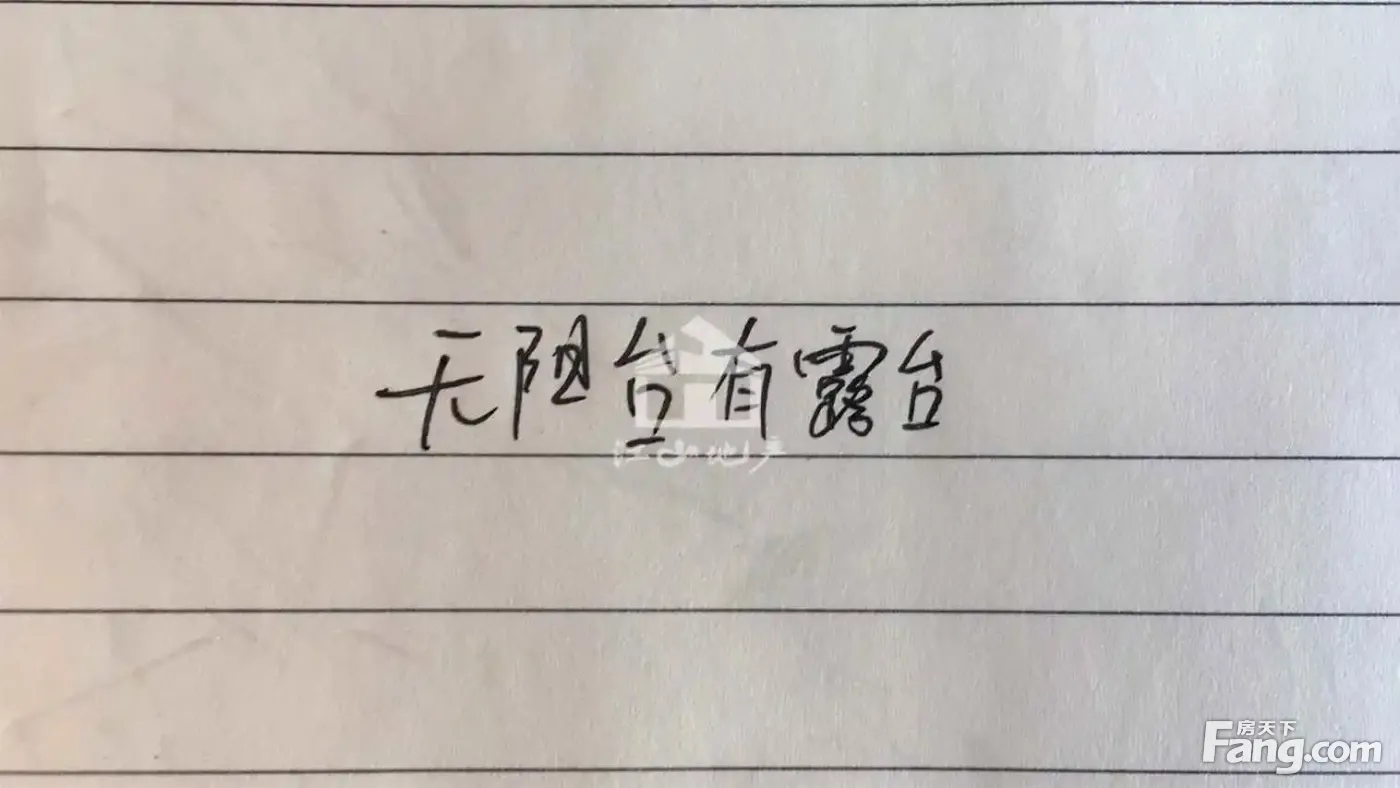 无阻台有露台
江山地产
房天下
Fang.com